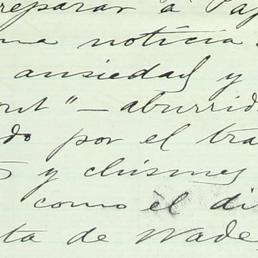 reparar á Pa
una noticia
ansiedad y
" — aburrid
do por el tra
y chismes
como el di
ta de Wade